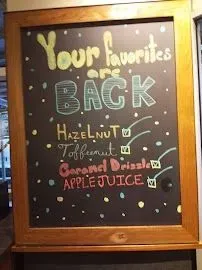 Your favorites
are
BACK
HAZELNUT
Toffeenut
Caramel Drizzle
APPLE JUICE